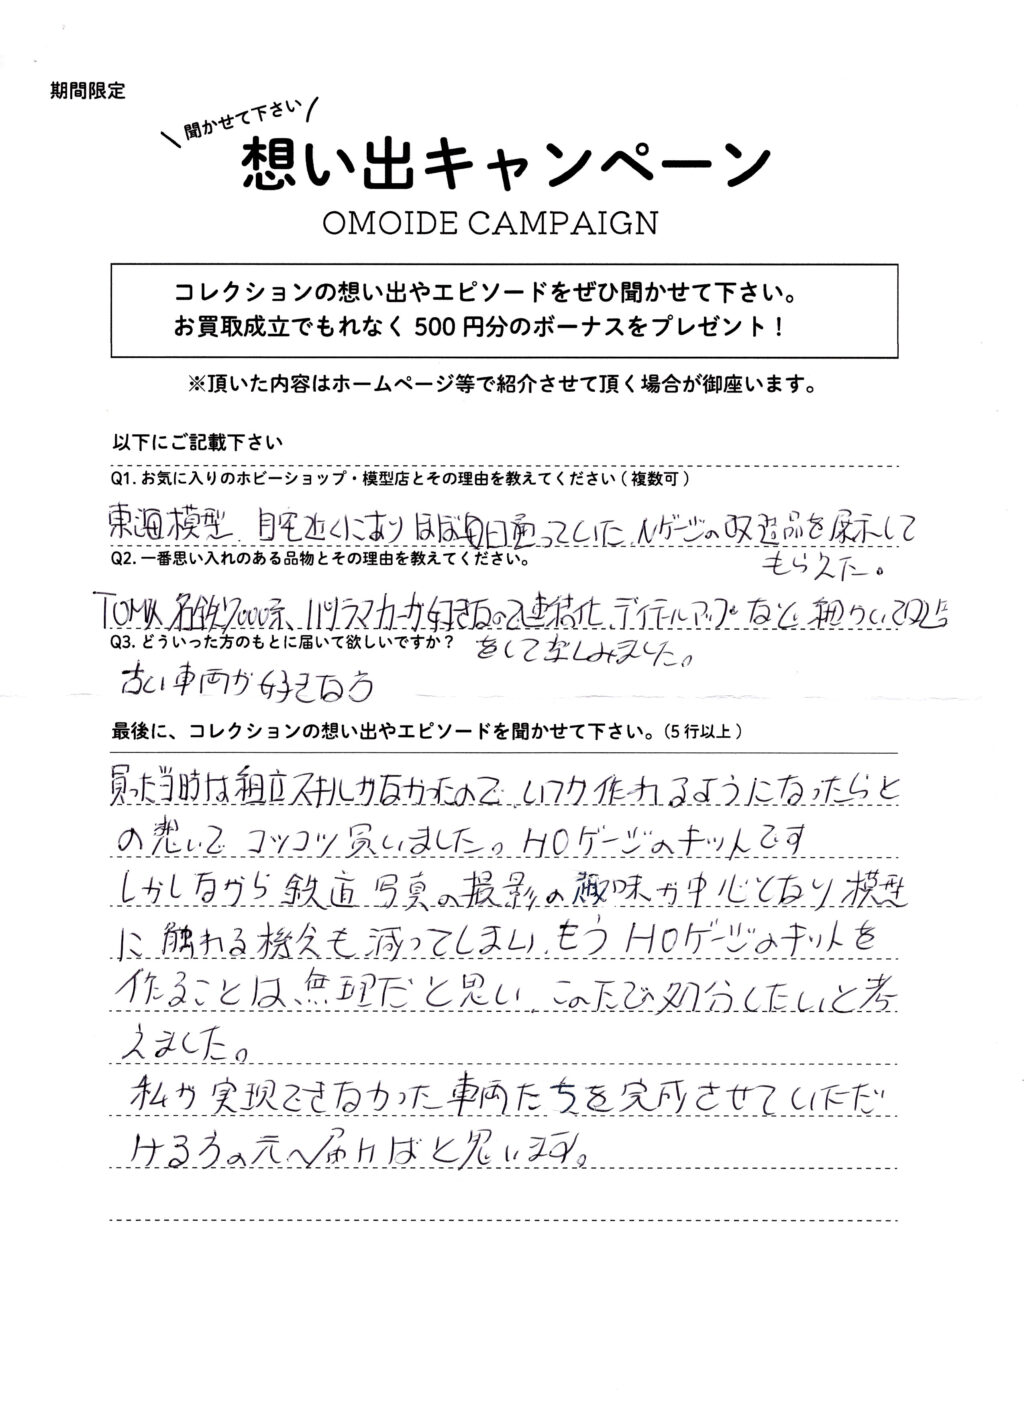 期間限定
聞かせて下さい
想い出キャンペーン
OMOIDE CAMPAIGN
コレクションの想い出やエピソードをぜひ聞かせて下さい。
お買取成立でもれなく 500 円分のボーナスをプレゼント！
※頂いた内容はホームページ等で紹介させて頂く場合が御座います。
以下にご記載下さい
Q1. お気に入りのホビーショップ・模型店とその理由を教えてください ( 複数可 )
東海模型、自宅近くにあり ほぼ毎日通っていた、Nゲージの改造品を展示して
もらえた。
Q2. 一番思い入れのある品物とその理由を教えてください。
TOMIX 名鉄7000系、パノラマカーが好きなので連結化、ディテールアップなど、細かい改造
をして楽しみました。
Q3. どういった方のもとに届いて欲しいですか？
古い車両が好きな方
最後に、コレクションの想い出やエピソードを聞かせて下さい。(5 行以上 )
買った当時は組立スキルがなかったので、いつか作れるようになったらと
の想いで コツコツ買いました。HOゲージのキットです
しかしながら 鉄道 写真の撮影の趣味が中心となり 模型
に触れる機会も減ってしまい、もう HOゲージのキットを
作ることは無理だと思い、このたび処分したいと考
えました。
私が実現できなかった車両たちを完成させていただ
ける方の元へ届けばと思います。